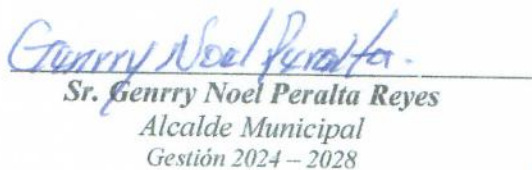 Genrry Noel Peralta.
Sr. Genrry Noel Peralta Reyes
Alcalde Municipal
Gestión 2024 – 2028